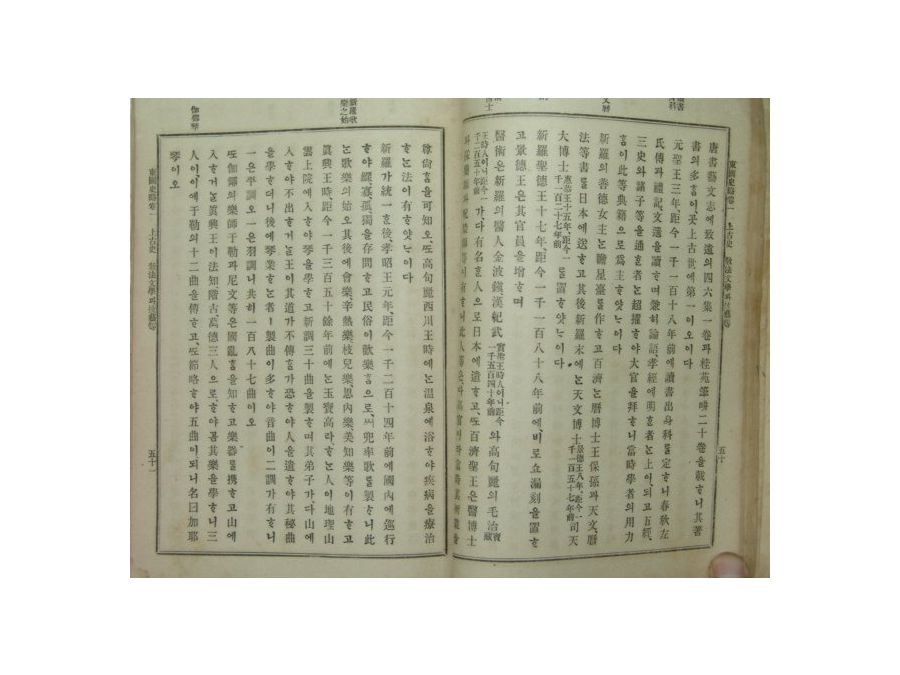 東國史略卷一 上古史 敎法文學과技藝 五十
唐書藝文志에致遠의四六集一卷과桂苑筆耕二十卷을載ᄒᆞ니其著
書의多ᄒᆞᆷ이곳上古世에第一이오이다
元聖王三年距今一千一百十八年前에讀書出身科를定ᄒᆞ니春秋左
氏傳과禮記文選을讀ᄒᆞ며兼ᄒᆞ야論語孝經에明ᄒᆞᆫ者ᄂᆞᆫ上이되고五經
三史와諸子等을通ᄒᆞᆫ者ᄂᆞᆫ超擢ᄒᆞ야大官을拜ᄒᆞ니當時學者의用力
ᄒᆞᆷ이此等典籍으로爲主ᄒᆞ얏ᄂᆞ이다
新羅의善德女主ᄂᆞᆫ瞻星臺를作ᄒᆞ고百濟ᄂᆞᆫ曆博士王保孫과天文曆
法等書를日本에送ᄒᆞ고其後新羅末에ᄂᆞᆫ天文博士 景德王八年,距今一千一百五十七年前 司天
大博士 惠恭王十五年,距今一千一百二十七年前 를置ᄒᆞ얏ᄂᆞ이다
新羅聖德王十七年距今一千一百八十八年前에비로소漏刻을置ᄒᆞ
고景德王은其官員을增ᄒᆞ며
醫術은新羅의醫人金波鎭漢紀武 實聖王時人이니距今一千五百四十年前 와高句麗의毛治 寶藏
王時人이니距今一千二百五十年前 가,다有名ᄒᆞᆫ人으로日本에遣ᄒᆞ고,ᄯᅩ百濟聖王은醫博士
新羅歌樂之始
伽倻琴
尊尙ᄒᆞᆷ을可知오,ᄯᅩ高句麗西川王時에ᄂᆞᆫ溫泉에浴ᄒᆞ야疾病을療治
ᄒᆞᄂᆞᆫ法이有ᄒᆞ얏ᄂᆞ이다
新羅가統一ᄒᆞᆫ後孝昭王元年,距今一千二百十四年前에國內에巡行
ᄒᆞ야鰥,寡,孤,獨을存問ᄒᆞ고民俗이歡樂ᄒᆞᆷ으로,써兜率歌를製ᄒᆞ니此
ᄂᆞᆫ歌樂의始오其後에會樂,辛熱樂,枝兒樂,思內樂,美知樂等이有ᄒᆞ고
眞興王時距今一千三百五十餘年前에ᄂᆞᆫ玉寶高라,ᄒᆞᄂᆞᆫ人이地理山
雲上院에入ᄒᆞ야琴을學ᄒᆞ고新調三十曲을製ᄒᆞ며其弟子가,다山에
入ᄒᆞ야不出ᄒᆞ거ᄂᆞᆯ王이其道가不傳ᄒᆞᆯ가恐ᄒᆞ야人을遣ᄒᆞ야其秘曲
을學ᄒᆞ더니後에琴業ᄒᆞᄂᆞᆫ者ㅣ製曲이多ᄒᆞ야音曲이二調가有ᄒᆞ니
一은平調오一은羽調니共히一百八十七曲이오
ᄯᅩ伽倻의樂師于勒과尼文等은國亂ᄒᆞᆷ을知ᄒᆞ고樂器를携ᄒᆞ고山에
入ᄒᆞ거ᄂᆞᆯ眞興王이法知階古萬德三人으로ᄒᆞ야곰其樂을學ᄒᆞ니三
人이,이에于勒의十二曲을傳ᄒᆞ고,ᄯᅩ節略ᄒᆞ야五曲이,되니名曰加耶
琴이오
東國史略卷一 上古史 敎法文學과技藝 五十一